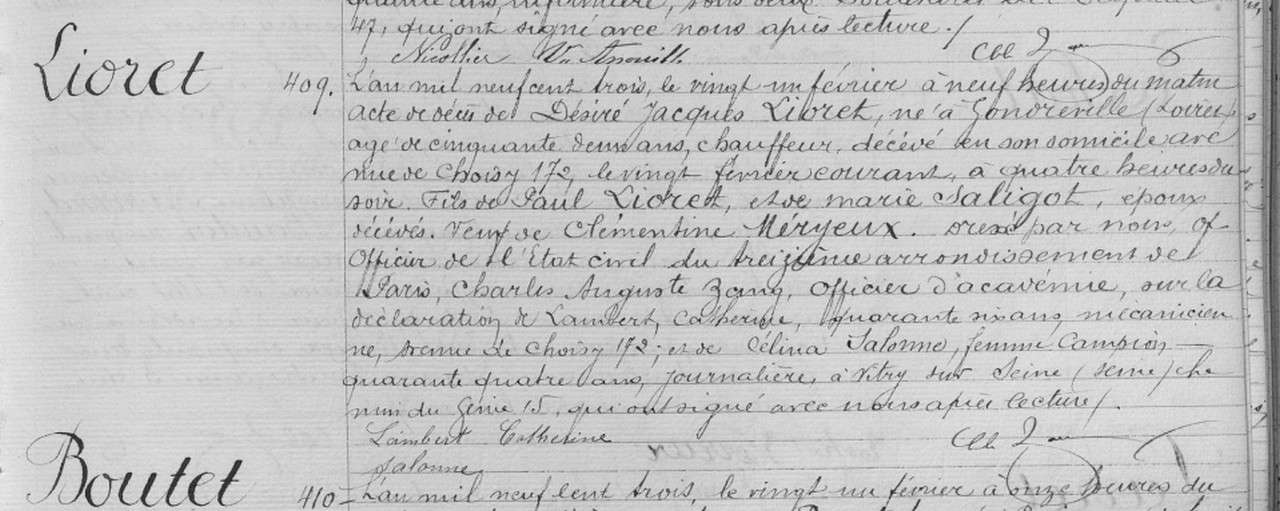 47, qui ont signé avec nous après lecture ./.
Nicollier
Lioret
409.
L'an mil neuf cent trois, le vingt un février à neuf heures du matin
acte de décès de Désiré Jacques Lioret, né à Gondreville (Loiret)
agé de cinquante deux ans, chauffeur, décédé en son domicile ave
nue de Choisy 172, le vingt février courant, à quatre heures du
soir. Fils de Paul Lioret, et de marie Saligot, époux
décédés. Veuf de Clémentine Méryeux. Dressé par nous, of
Officier de l'Etat civil du treizième arrondissement de
Paris, Charles Auguste Zang, Officier d'académie, sur la
déclaration de Lambert, Catherine, quarante six ans, mécanicien
ne, avenue de Choisy 172; et de Célina Salonne, femme Campion,
quarante quatre ans, journalière, à Vitry sur Seine (Seine) che
min du Génie 15, qui ont signé avec nous après lecture /.
Lambert Catherine
Salonne
Boutet
410 -
L'an mil neuf cent trois, le vingt un février à onze heures du